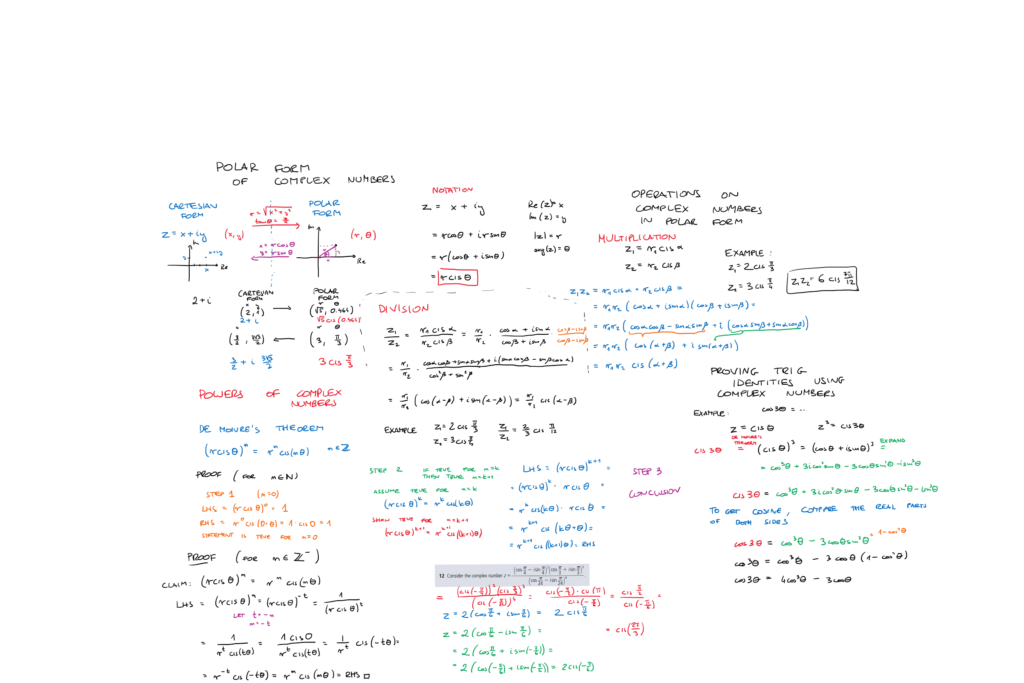 POLAR FORM
OF COMPLEX NUMBERS
CARTESIAN
FORM
z = x + iy
r = √(x² + y²)
tan θ = y/x
(x, y)
x = r cos θ
y = r sin θ
POLAR
FORM
(r, θ)
Im
Re
Re
2 + i
CARTESIAN
FORM
(2, 1)
2 + i
POLAR
FORM
r θ
(√5, 0.464)
√5 cis (0.464)
(3/2, 3√3/2)
(3, π/3)
3/2 + i 3√3/2
3 cis π/3
NOTATION
z = x + iy
= r cos θ + i r sin θ
= r (cos θ + i sin θ)
= r cis θ
Re(z) = x
Im(z) = y
|z| = r
arg(z) = θ
OPERATIONS ON
COMPLEX NUMBERS
IN POLAR FORM
MULTIPLICATION
z₁ = r₁ cis α
z₂ = r₂ cis β
EXAMPLE:
z₁ = 2 cis π/3
z₂ = 3 cis π/4
z₁z₂ = 6 cis 7π/12
z₁z₂ = r₁ cis α · r₂ cis β =
= r₁r₂ (cos α + i sin α)(cos β + i sin β) =
= r₁r₂ (cos α cos β − sin α sin β + i (cos α sin β + sin α cos β))
= r₁r₂ (cos (α+β) + i sin(α+β))
= r₁r₂ cis (α+β)
DIVISION
z₁/z₂ = r₁ cis α / r₂ cis β = r₁/r₂ · (cos α + i sin α)/(cos β + i sin β) · (cos β − i sin β)/(cos β − i sin β)
= r₁/r₂ · (cos α cos β + sin α sin β + i (sin α cos β − sin β cos α))/(cos² β + sin² β)
= r₁/r₂ (cos (α−β) + i sin (α−β)) = r₁/r₂ cis (α−β)
EXAMPLE
z₁ = 2 cis π/3
z₂ = 3 cis π/4
z₁/z₂ = 2/3 cis π/12
POWERS OF COMPLEX
NUMBERS
DE MOIVRE'S THEOREM
(r cis θ)ⁿ = rⁿ cis (nθ) n ∈ ℤ
PROOF (FOR n ∈ ℕ)
STEP 1 (n=0)
LHS = (r cis θ)⁰ = 1
RHS = r⁰ cis (0·θ) = 1 · cis 0 = 1
STATEMENT IS TRUE FOR n=0
STEP 2 IF TRUE FOR n=k
THEN TRUE n=k+1
ASSUME TRUE FOR n=k
(r cis θ)ᵏ = rᵏ cis (kθ)
SHOW TRUE FOR n=k+1
(r cis θ)ᵏ⁺¹ = rᵏ⁺¹ cis ((k+1)θ)
LHS = (r cis θ)ᵏ⁺¹
= (r cis θ)ᵏ · r cis θ =
= rᵏ cis (kθ) · r cis θ =
= rᵏ⁺¹ cis (kθ+θ) =
= rᵏ⁺¹ cis ((k+1)θ) = RHS
STEP 3
CONCLUSION
PROOF (FOR n ∈ ℤ⁻)
CLAIM: (r cis θ)ⁿ = rⁿ cis (nθ)
LHS = (r cis θ)ⁿ = (r cis θ)⁻ᵗ = 1/(r cis θ)ᵗ
LET t = −n
n = −t
= 1/(rᵗ cis (tθ)) = 1 cis 0/(rᵗ cis (tθ)) = 1/rᵗ cis (−tθ) =
= r⁻ᵗ cis (−tθ) = rⁿ cis (nθ) = RHS □
12 Consider the complex number z =
z = 2 (cos π/6 + i sin π/6) = 2 cis π/6
z = 2 (cos π/6 − i sin π/6) =
= 2 (cos π/6 + i sin (−π/6)) =
= 2 (cos (−π/6) + i sin (−π/6)) = 2 cis (−π/6)
PROVING TRIG
IDENTITIES USING
COMPLEX NUMBERS
EXAMPLE: cos 3θ = ...
z = cis θ z³ = cis 3θ
DE MOIVRE'S
THEOREM
cis 3θ = (cis θ)³ = (cos θ + i sin θ)³ = EXPAND
= cos³ θ + 3i cos² θ sin θ − 3 cos θ sin² θ − i sin³ θ
cis 3θ = cos³ θ + 3i cos² θ sin θ − 3 cos θ sin² θ − i sin³ θ
TO GET COSINE, COMPARE THE REAL PARTS
OF BOTH SIDES
1 − cos² θ
cos 3θ = cos³ θ − 3 cos θ sin² θ
cos 3θ = cos³ θ − 3 cos θ (1 − cos² θ)
cos 3θ = 4 cos³ θ − 3 cos θ